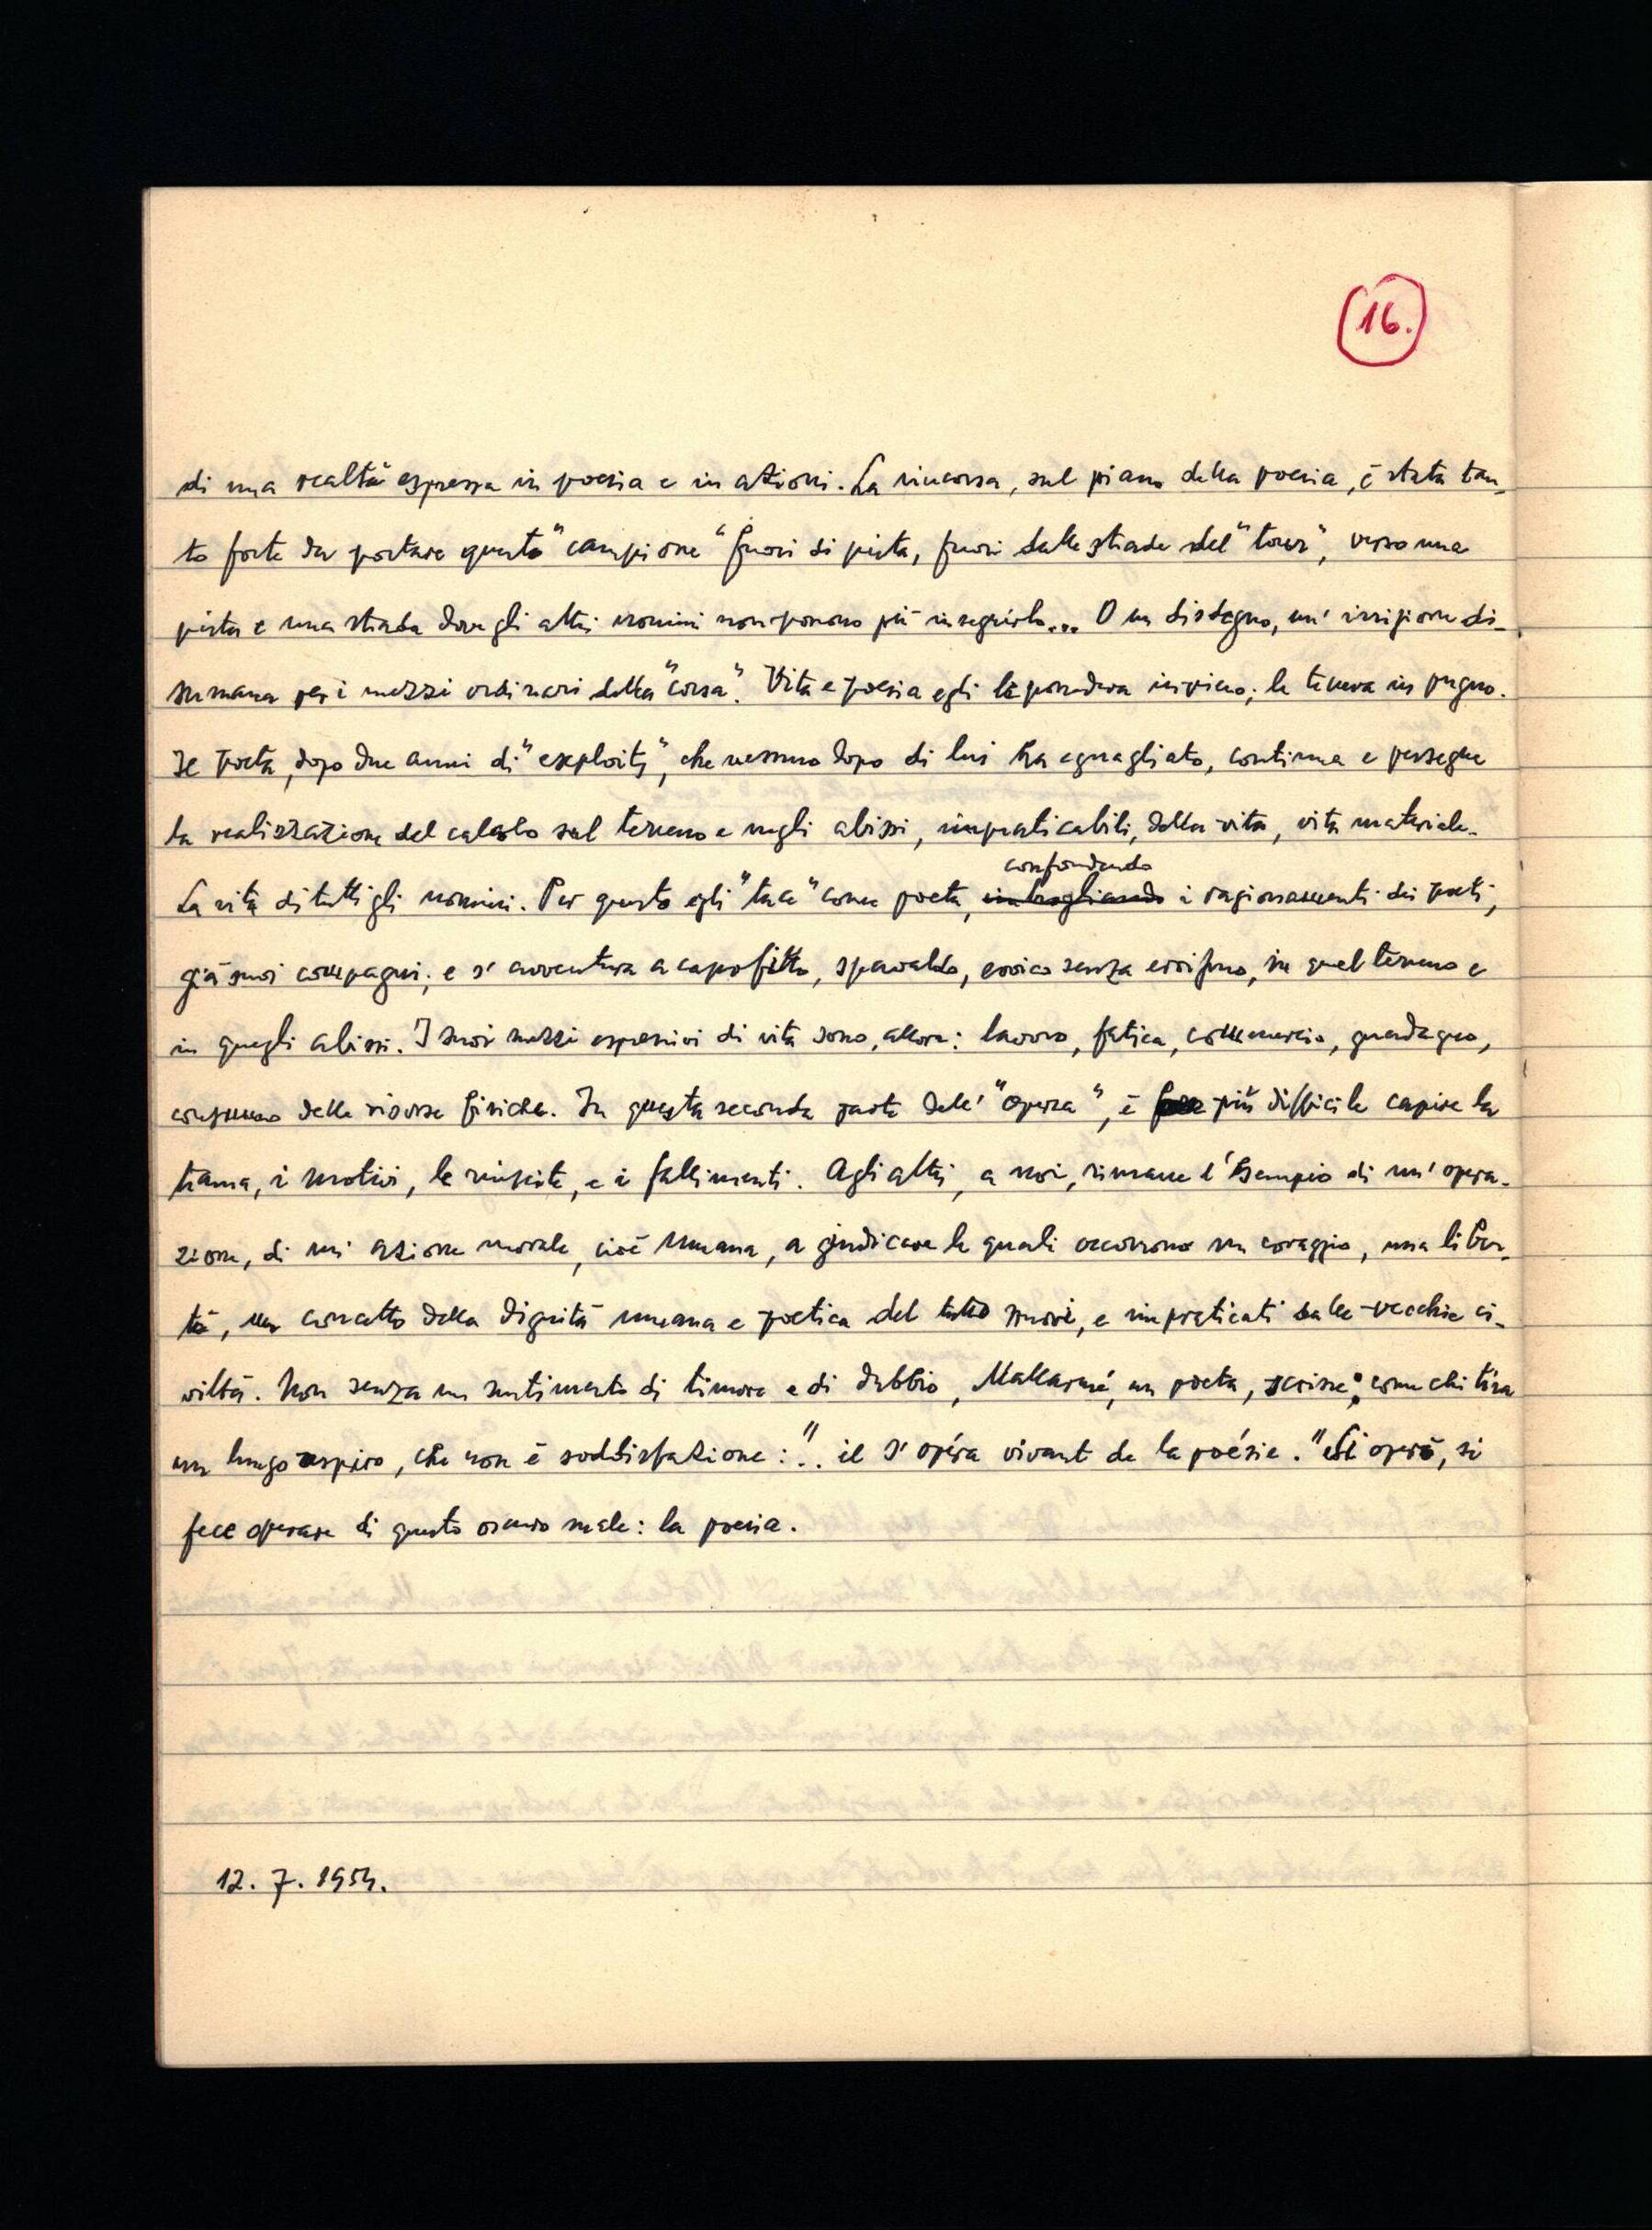 16.
di una realtà espressa in poesia e in azioni. La rincorsa, sul piano della poesia, è stata tan-
to forte da portare questo "campione" fuori di pista, fuori dalle strade del "tour", verso una
pista e una strada dove gli altri uomini non possono più inseguirlo... O un disdegno, un' irrisione di-
sumana per i mezzi ordinari della "corsa". Vita e poesia egli le possedeva in pieno; le teneva in pugno.
Il poeta, dopo due anni di "exploits", che nessuno dopo di lui ha eguagliato, continua e persegue
la realizzazione del calcolo sul terreno e negli abissi, impraticabili, della vita, vita materiale.
confondendo
La vita di tutti gli uomini. Per questo egli "tace" come poeta, imbrogliando i ragionamenti dei poeti,
già suoi compagni; e s' avventura a capofitto, spavaldo, eroico senza eroismo, in quel terreno e
in quegli abissi. I suoi mezzi espressivi di vita sono, allora: lavoro, fatica, commercio, guadagno,
consumo delle risorse fisiche. In questa seconda parte dell' "opera", è più difficile capire la
trama, i motivi, le riuscite, e i fallimenti. Agli altri, a noi, rimane l' esempio di un' opera-
zione, di un' azione morale, cioè umana, a giudicare le quali occorrono un coraggio, una liber-
tà, un concetto della dignità umana e poetica del tutto nuovi, e impraticati dalle vecchie ci-
viltà. Non senza un sentimento di timore e di dubbio, Mallarmé, un poeta, scrisse, come chi tira
un lungo respiro, che non è soddisfazione: ".. il s' opéra vivant de la poésie." Si operò, si
fece operare di questo oscuro male: la poesia.
12. 7. 1954.